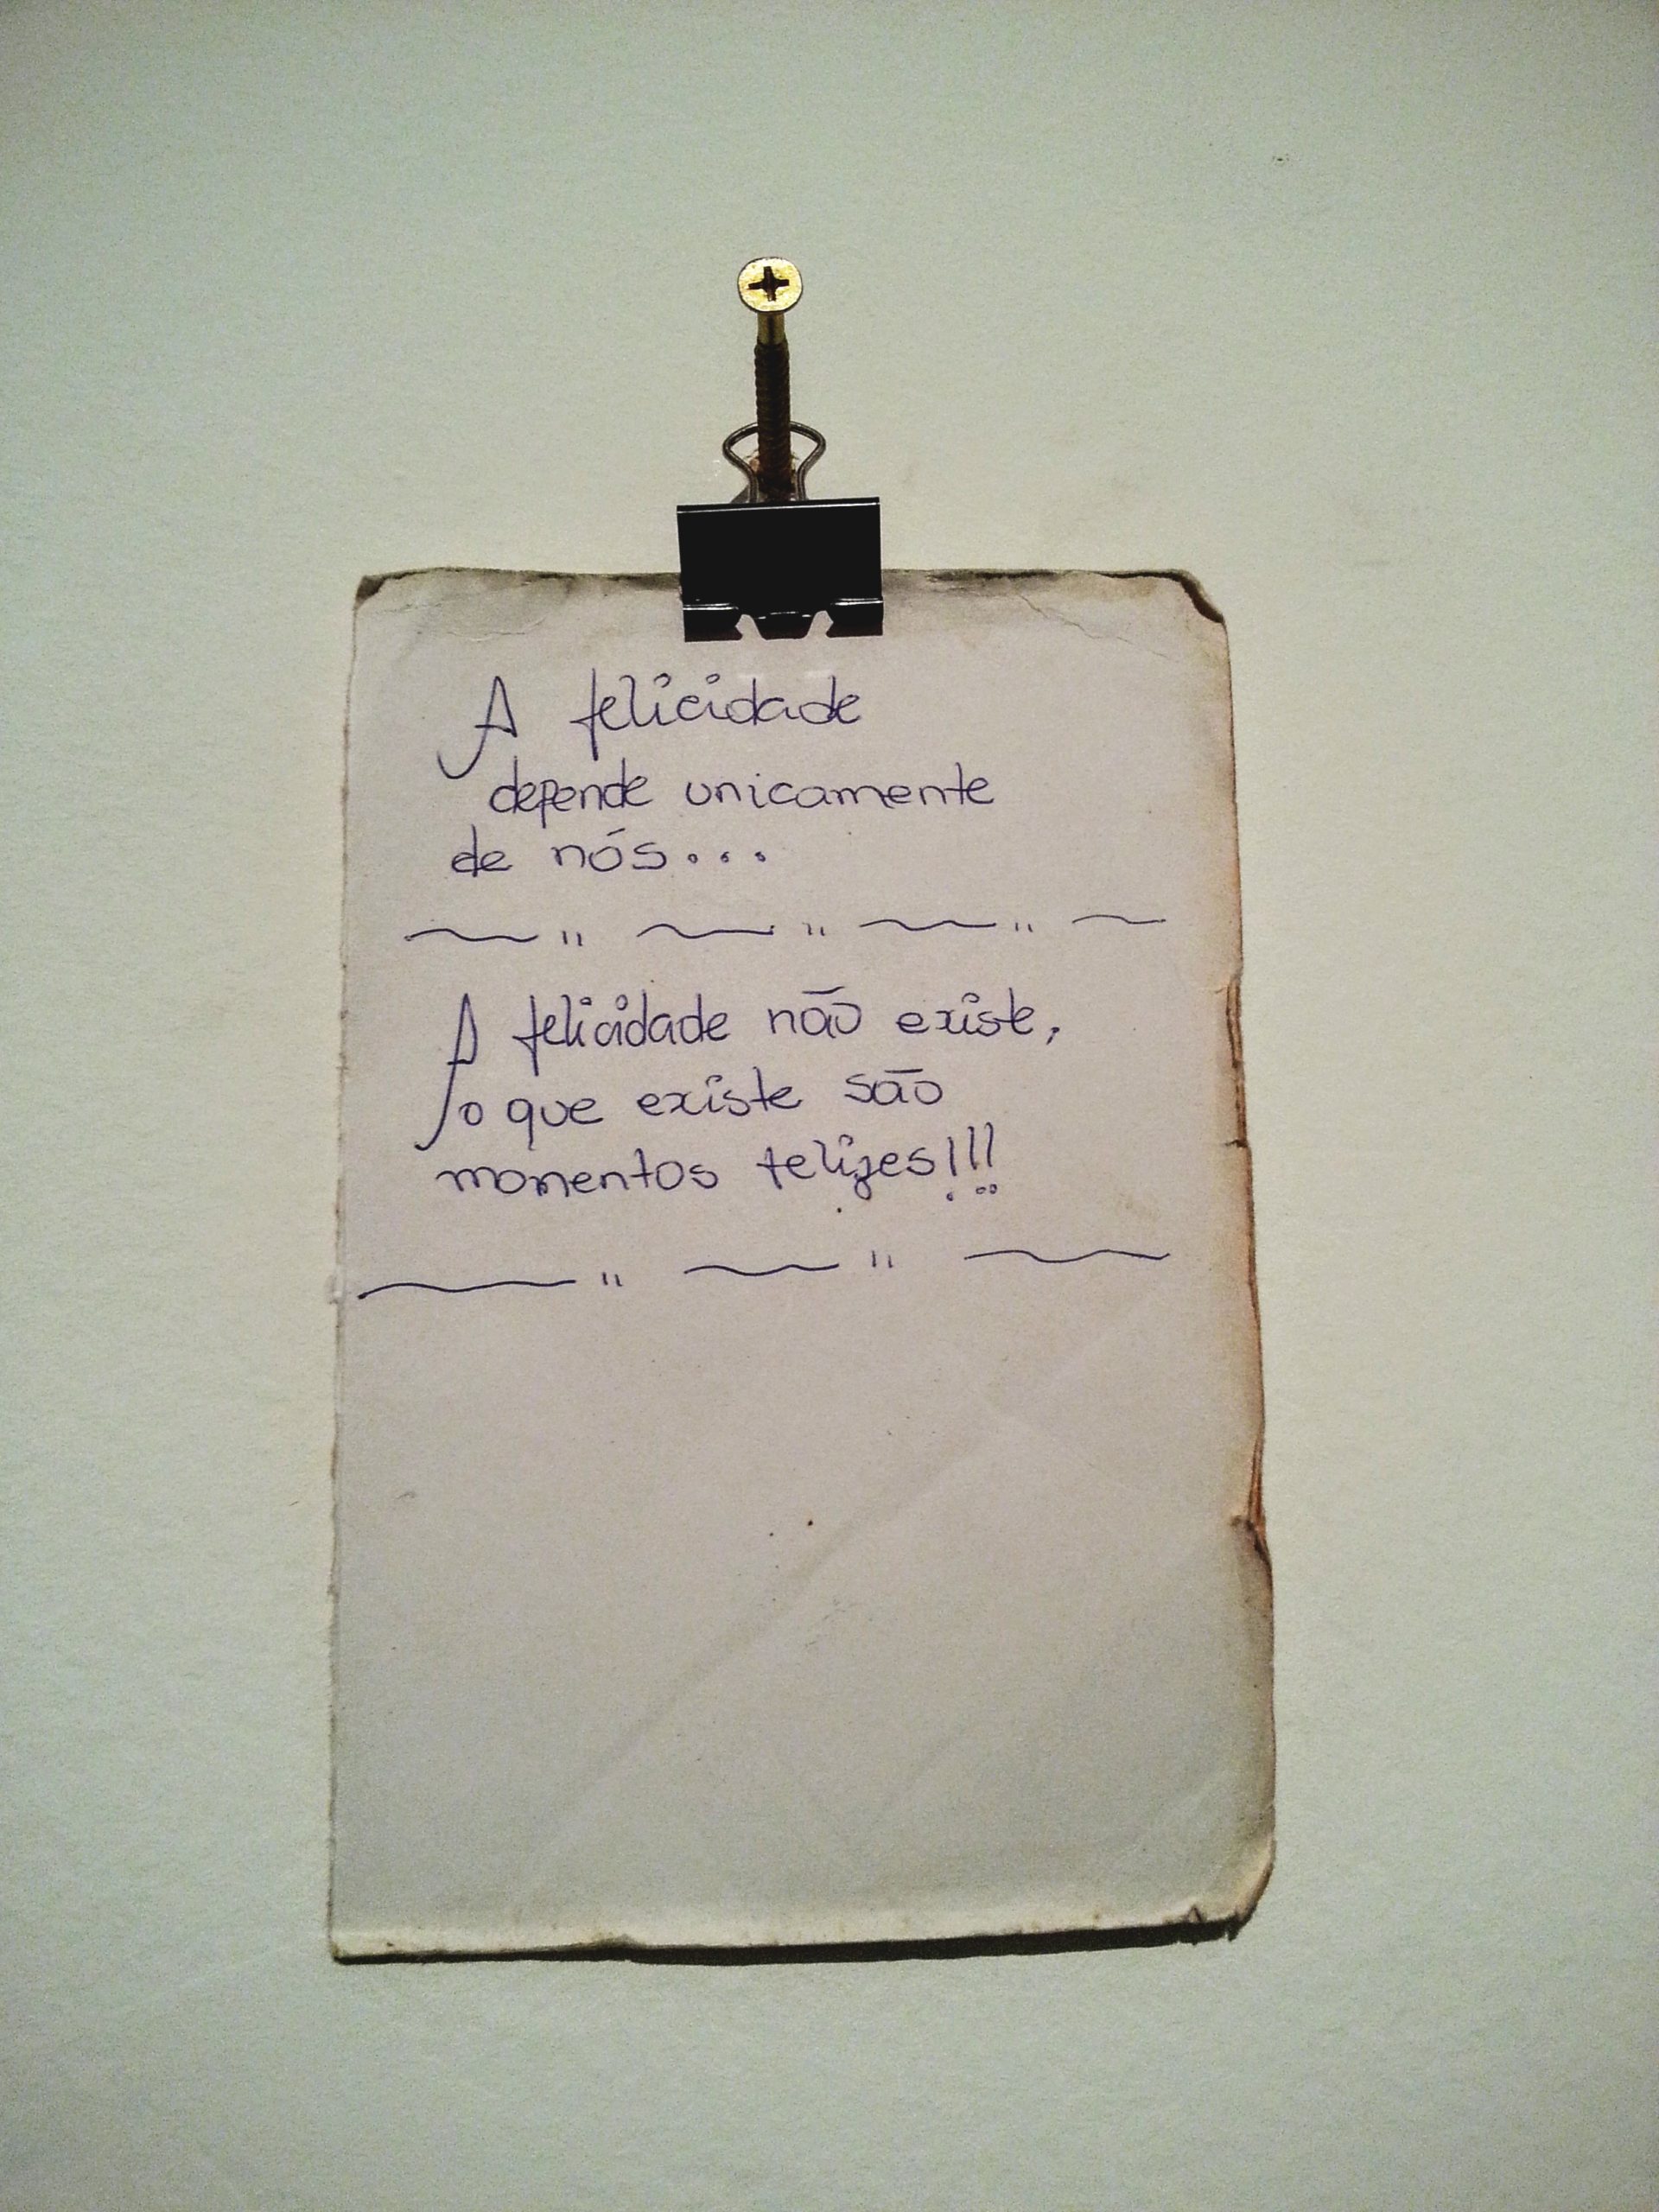 A felicidade
depende unicamente
de nós...
~ " ~ " ~ " ~
A felicidade não existe,
o que existe são
momentos felizes!!!
~ " ~ " ~